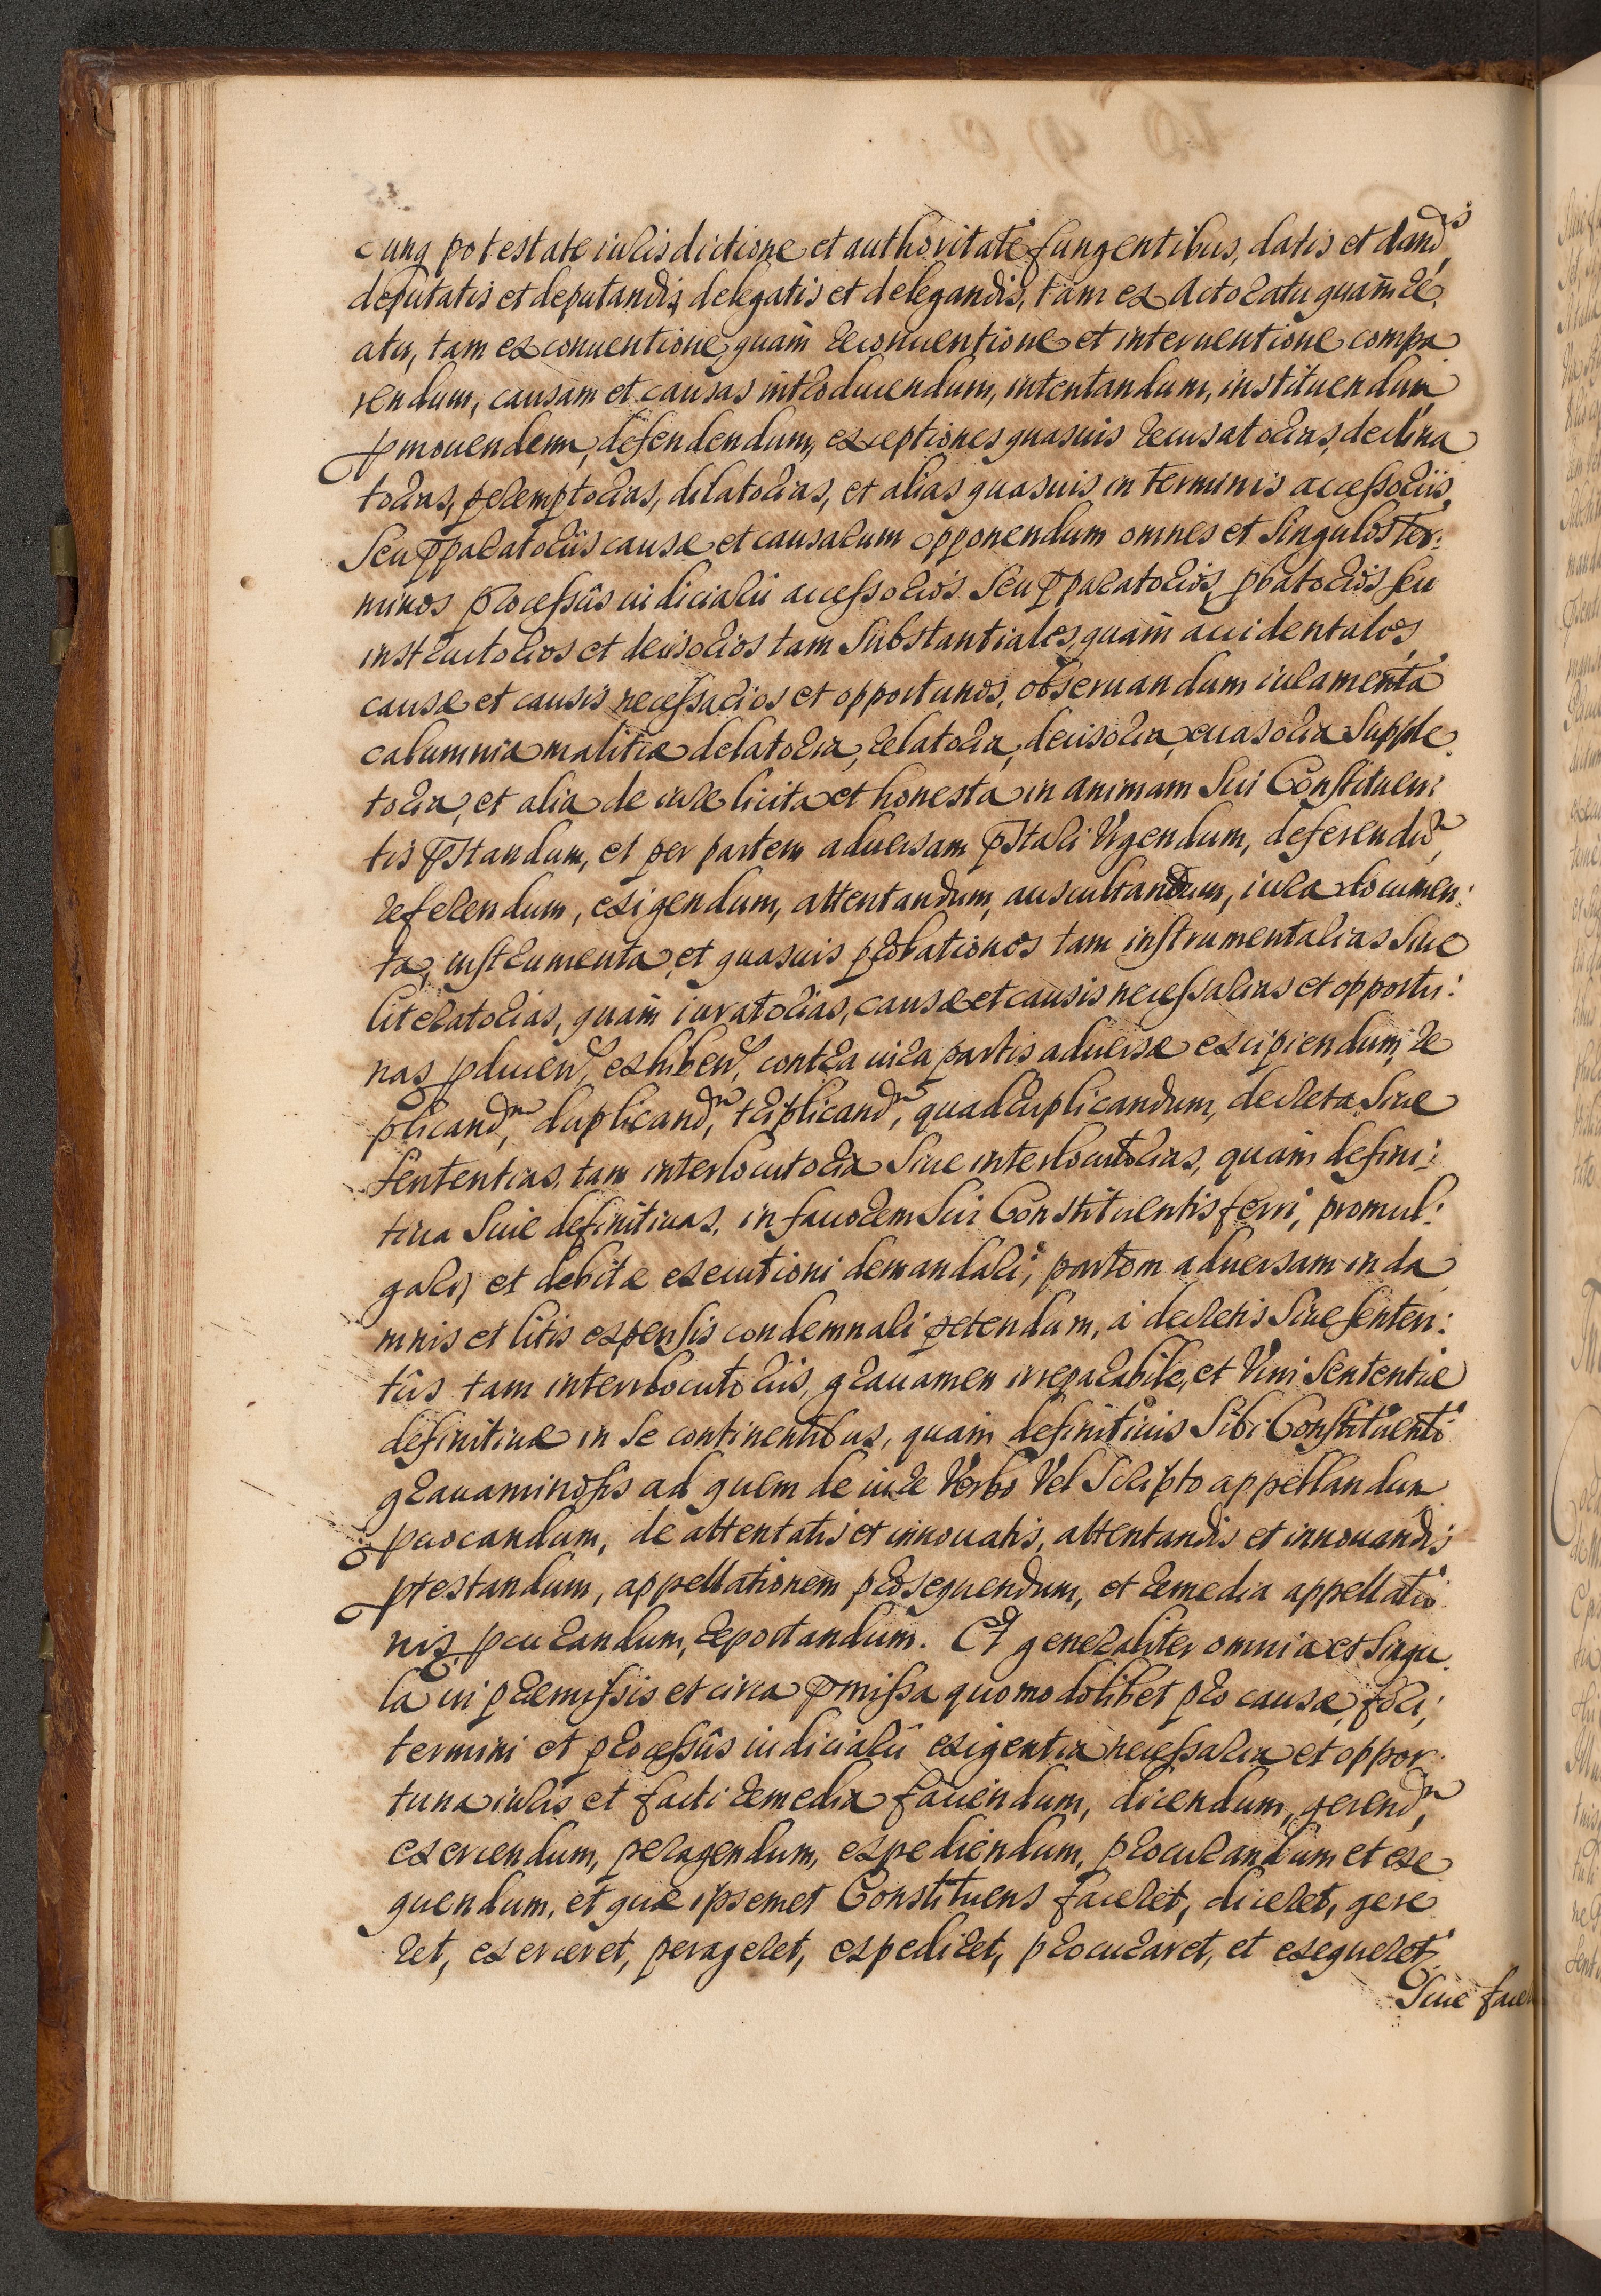 cunq potestate iurisdictione et authoritate fungentibus, datis et dand,is
deputatis et deputandis, delegatis et delegandis, tam ex Actoratu quàm re
atu, tam ex conuentione, quàm reconuentione et interuentione compa
rendum, causam et causas introducendum, intentandum, instituendum,
pmouendum, defendendum, exceptiones quasuis recusatorias, declina
torias, peremptorias, dilatorias, et alias quasuis in terminis accessoriis,
Seu pparatoriis causæ et causarum opponendum omnes et Singulos ter:
minos processûs iudicialis accessorios Seu pparatorios, pbatorios seu
instructorios et decisorios tam Substantiales, quàm accidentales,
causæ et causis necessarios et opportunos, obseruandum iuramenta
calumniæ malitiæ delatoria, relatoria, decisoria, euasoria Supple
toria, et alia de iure licita et honesta in animam Sui Constituen:
tis pstandum, et per partem aduersam pstari Vrgendum, deferendũ,
referendum, exigendum, attentandum, auscultandum, iura documen:
ta, instrumenta, et quasuis probationes tam instrumentalias Siue
literatorias, quàm iuratorias, causæ et causis necessarias et opportu:
nas pducend, exhibend, contra iura partis aduersæ excipiendum, re
plicandm, duplicandm, triplicandm, quadruplicandum, decreta Siue
Sententias, tam interlocutoria Siue interlocutorias, quàm defini:
tiua Siue definitiuas, in fauorem Sui Constituentis ferri, promul:
gari, et debitæ executioni demandari, partem aduersam in da
mnis et litis expensis condemnari petendum, à decretis Siue senten:
tiis tam interlocutoriis, grauamen irreparabile, et Vim Sententiæ
definitiuæ in Se continentibus, quàm definitiuis Sibi Constituenti
grauaminosis ad quem de iure Verbo Vel Scripto appellandum
puocandum, de attentatis et innouatis, attentandis et innouandis
ptestandum, appellationem prosequendum, et remedia appellatio
nis pcurandum, reportandum. Et generaliter omnia et Singu
la in præmissis et circa pmissa quomodolibet pro causæ, fori,
termini et processûs iudicialis exigentia necessaria et oppor
tuna iuris et facti remedia faciendum, dicendum, gerendm,
exercendum, peragendum, expediendum, procurandum et exe
quendum, et quæ ipsemet Constituens faceret, diceret, gere
ret, exerceret, perageret, expediret, procuraret, et exequeret
Siue facer